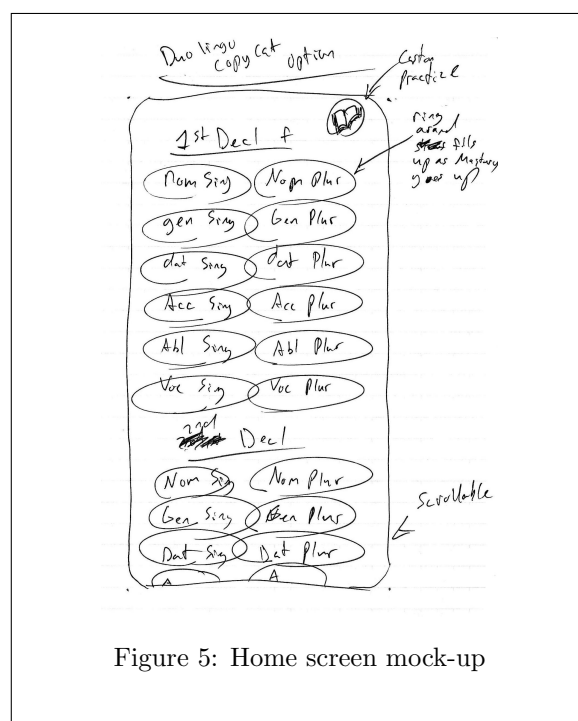 Duo lingo
copy cat option
Custom
practice
1st Decl f
ring
around
fills
up as Mastery
goes up
Nom Sing Nom Plur
gen Sing Gen Plur
dat Sing dat Plur
Acc Sing Acc Plur
Abl Sing Abl Plur
Voc Sing Voc Plur
2nd Decl
Nom Sing Nom Plur
Gen Sing Gen Plur
Dat Sing Dat Plur
A A
Scrollable
Figure 5: Home screen mock-up